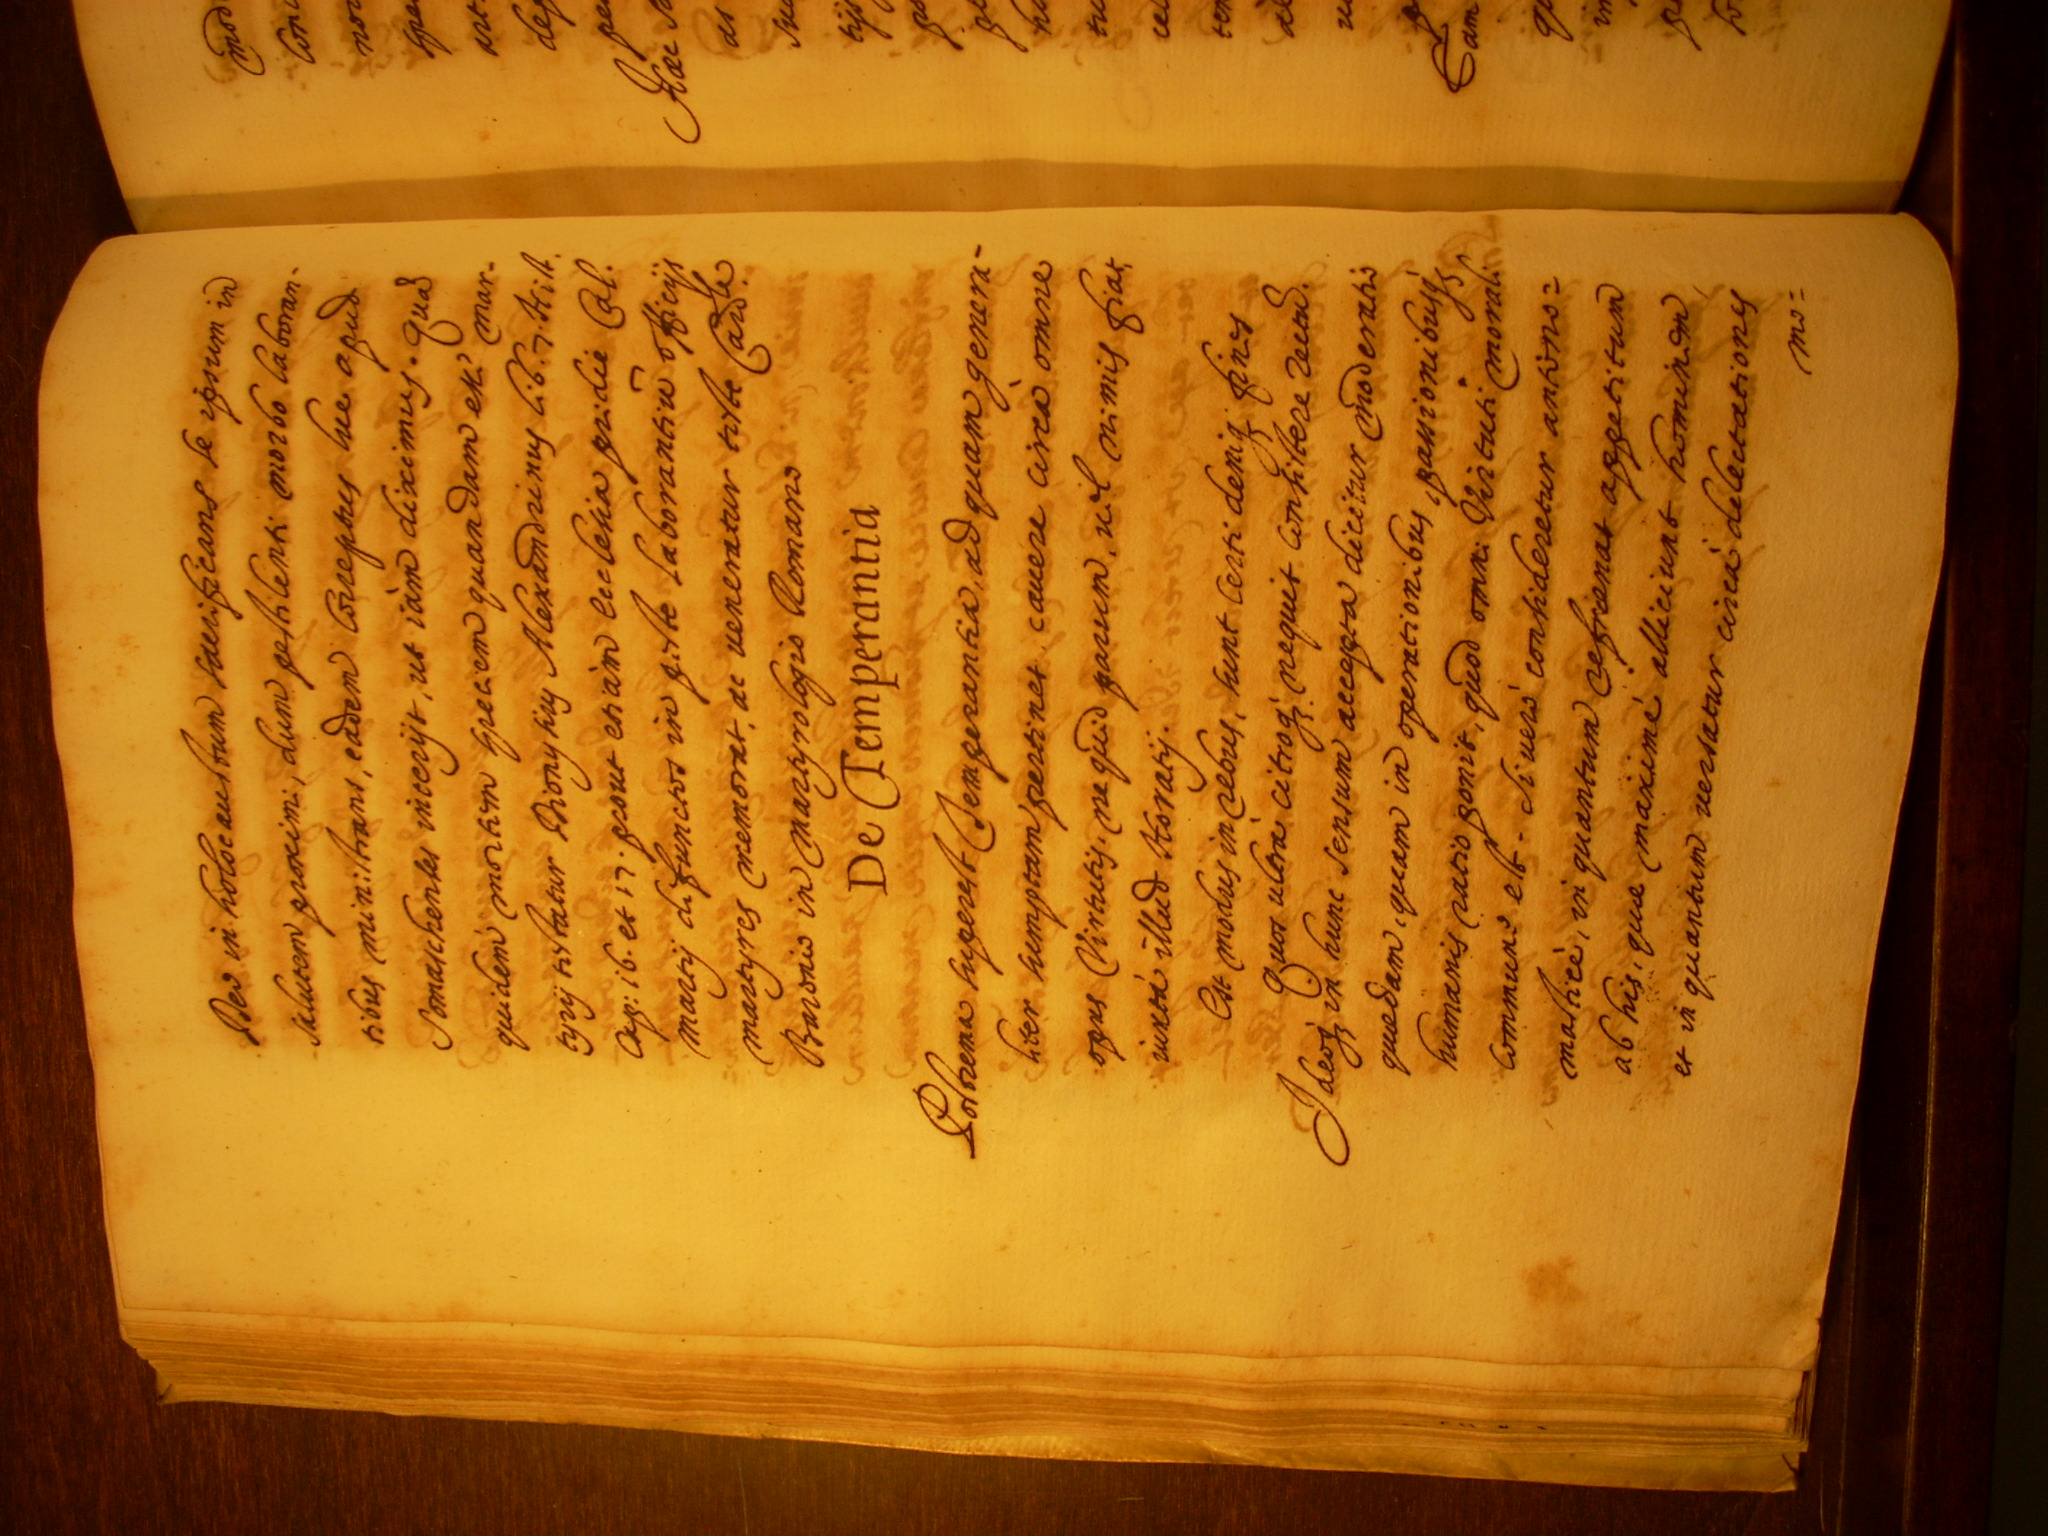 Deo in holocaustum sacrificans se ipsum in
salutem proximi, dum pestilenti morbo laboran-
tibus ministrans, eadem correptus lue apud
Somaschenses interijt, ut iàm diximus. Quod
quidem mortem speciem quandam esse mar-
tyrij testatur Dionysius Alexandrinus lib. 7. Hist.
cap: 16. et 17. prout etiàm ecclesia pridie Cal.
Martij defunctos in peste laborantiũ officijs
martyres memorat, ac ueneratur teste Card.le
Baronio in Martyrologio Romano
De Temperantia
Postrema superest Temperantia, ad quam genera-
liter sumptam pertinet cauere circà omne
opus Virtutis, ne quid parum, uel nimis fiat
iuxtà illud Horatij.
Est modus in rebus, sunt certi deniq fines
Quos ultrà citroq nequit consistere rectũ.
Ideoq in hunc sensum accepta dicitur moderatio
quedam, quam in operationibus, passionibusq
humanis ratio ponit, quod omni Virtuti morali
commune est. Si uerò consideretur antono=
masticè, in quantum refrenat appetitum
ab his, que maximè alliciunt hominem
et in quantum uersatur circà delectationes
mo=